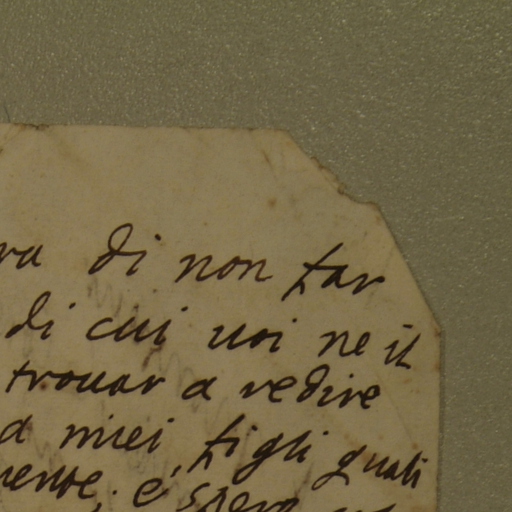 di non far
di cui uoi ne il
trouar a vedire
miei figli quali
e spero